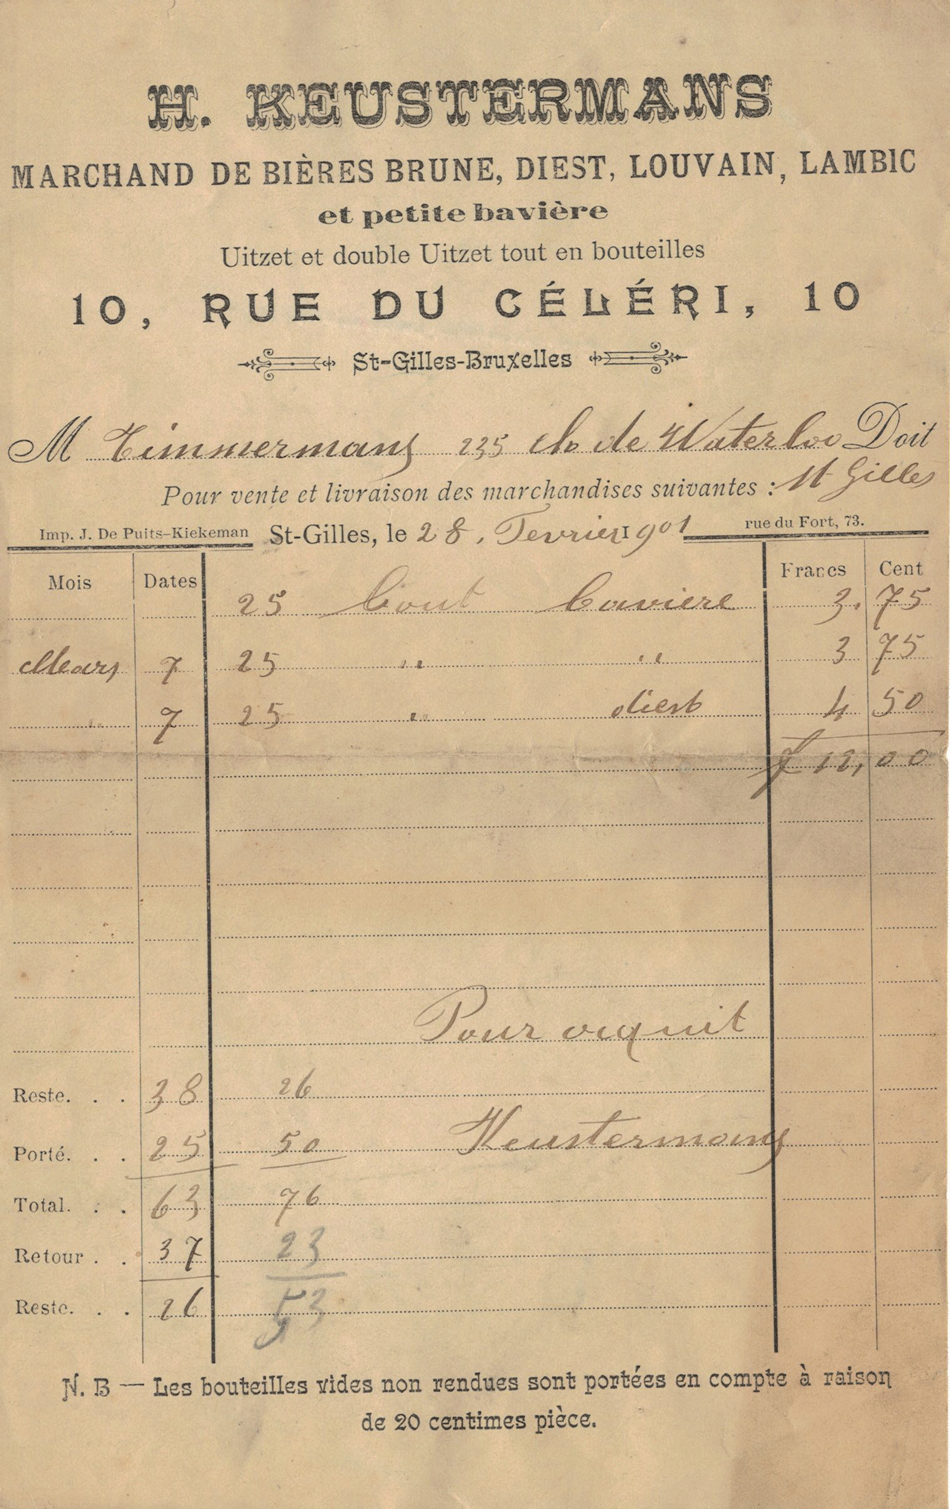 H. KEUSTERMANS
MARCHAND DE BIÈRES BRUNE, DIEST, LOUVAIN, LAMBIC
et petite bavière
Uitzet et double Uitzet tout en bouteilles
10, RUE DU CÉLÉRI, 10
St-Gilles-Bruxelles
M Timmermans 235 ch de Waterloo Doit
Pour vente et livraison des marchandises suivantes : St Gilles
Imp. J. De Puits-Kiekeman St-Gilles, le 28. Fevrier 1901 rue du Fort, 73.
Mois Dates Francs Cent
25 bout bavière 3. 75
Mars 7 25 " " 3 75
" 7 25 " diest 4 50
f 12,00
Pour acquit
Reste. . . 38 26
Porté. . . 25 50 Keustermans
Total. . . 63 76
Retour . . 37 23
Reste. . . 26 53
N. B — Les bouteilles vides non rendues sont portées en compte à raison
de 20 centimes pièce.